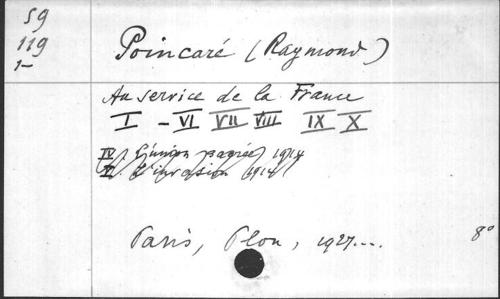 59
119
1-
Poincaré (Raymond)
Au service de la France
I - VI VII VIII IX X
IV. L'union sacrée 1914
V. L'invasion 1914
Paris, Plon, 1927....
8°